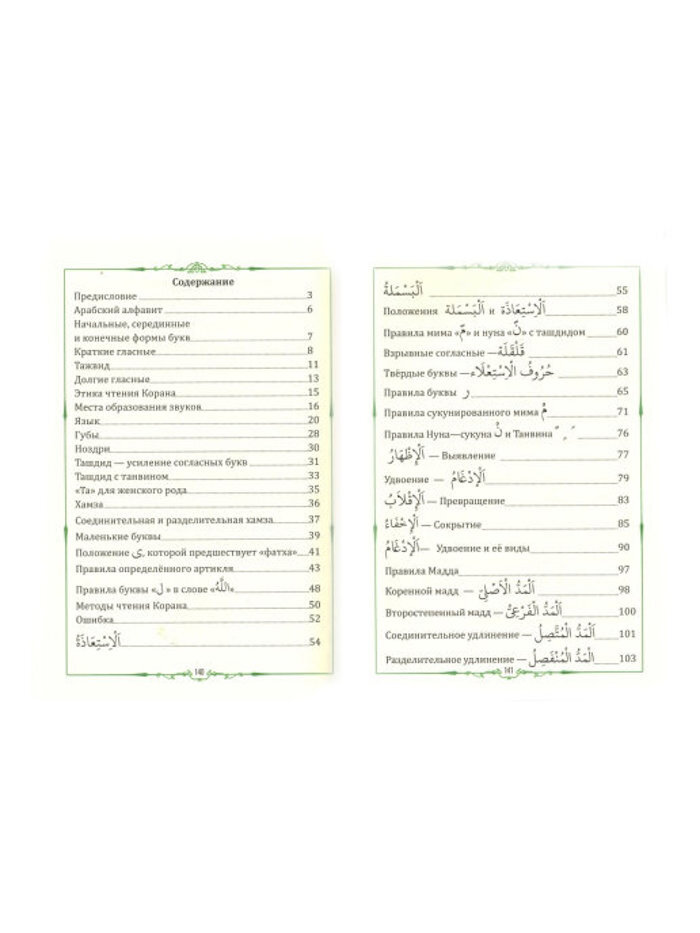 Содержание
Предисловие 3
Арабский алфавит 6
Начальные, серединные
и конечные формы букв 7
Краткие гласные 8
Тажвид 11
Долгие гласные 13
Этика чтения Корана 15
Места образования звуков 16
Язык 20
Губы 28
Ноздри 30
Ташдид — усиление согласных букв 31
Ташдид с танвином 33
«Та» для женского рода 35
Хамза 36
Соединительная и разделительная хамза 37
Маленькие буквы 39
Положение ى, которой предшествует «фатха» 41
Правила определённого артикля 43
Правила буквы «ل» в слове «اللَّهُ» 48
Методы чтения Корана 50
Ошибка 52
اَلْاِسْتِعَاذَةُ 54
140
اَلْبَسْمَلَةُ 55
Положения اَلْبَسْمَلَة и اَلْاِسْتِعَاذَة 58
Правила мима «مّ» и нуна «نّ» с ташдидом 60
Взрывные согласные — قَلْقَلَة 61
Твёрдые буквы — حُرُوفُ الْاِسْتِعْلَاء 63
Правила буквы ر 65
Правила сукунированного мима مْ 71
Правила Нуна—сукуна نْ и Танвина ً ٍ ٌ 76
اَلْاِظْهَارُ — Выявление 77
Удвоение — اَلْاِدْغَامُ 79
اَلْاِقْلَابُ — Превращение 83
اَلْاِخْفَاءُ — Сокрытие 85
اَلْاِدْغَامُ — Удвоение и её виды 90
Правила Мадда 97
Коренной мадд — اَلْمَدُّ الْاَصْلِيُّ 98
Второстепенный мадд — اَلْمَدُّ الْفَرْعِيُّ 100
Соединительное удлинение — اَلْمَدُّ الْمُتَّصِلُ 101
Разделительное удлинение — اَلْمَدُّ الْمُنْفَصِلُ 103
141